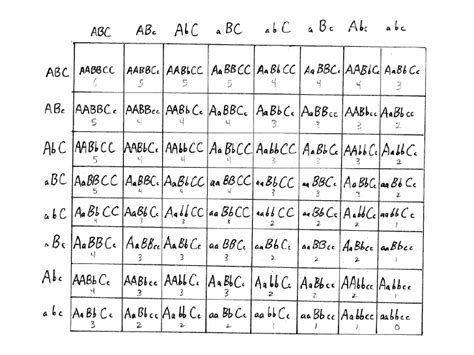 ABC ABc AbC aBC abC aBc Abc abc
ABC AABBCC AABBCc AABbCC AaBBCC AaBbCC AaBBCc AABbCc AaBbCc
6 5 5 5 4 4 4 3
ABc AABBCc AABBcc AABbCc AaBBCc AaBbCc AaBBcc AABbcc AaBbcc
5 4 4 4 3 3 3 2
AbC AABbCC AABbCc AAbbCC AaBbCC AabbCC AaBbCc AAbbCc AabbCc
5 4 4 4 3 3 3 2
aBC AaBBCC AaBBCc AaBbCC aaBBCC aaBbCC aaBBCc AaBbCc aaBbCc
5 4 4 4 3 3 3 2
abC AaBbCC AaBbCc AabbCC aaBbCC aabbCC aaBbCc AabbCc aabbCc
4 3 3 3 2 2 2 1
aBc AaBBCc AaBBcc AaBbCc aaBBCc aaBbCc aaBBcc AaBbcc aaBbcc
4 3 3 3 2 2 2 1
Abc AABbCc AABbcc AAbbCc AaBbCc AabbCc AaBbcc AAbbcc Aabbcc
4 3 3 3 2 2 2 1
abc AaBbCc AaBbcc AabbCc aaBbCc aabbCc aaBbcc Aabbcc aabbcc
3 2 2 2 1 1 1 0